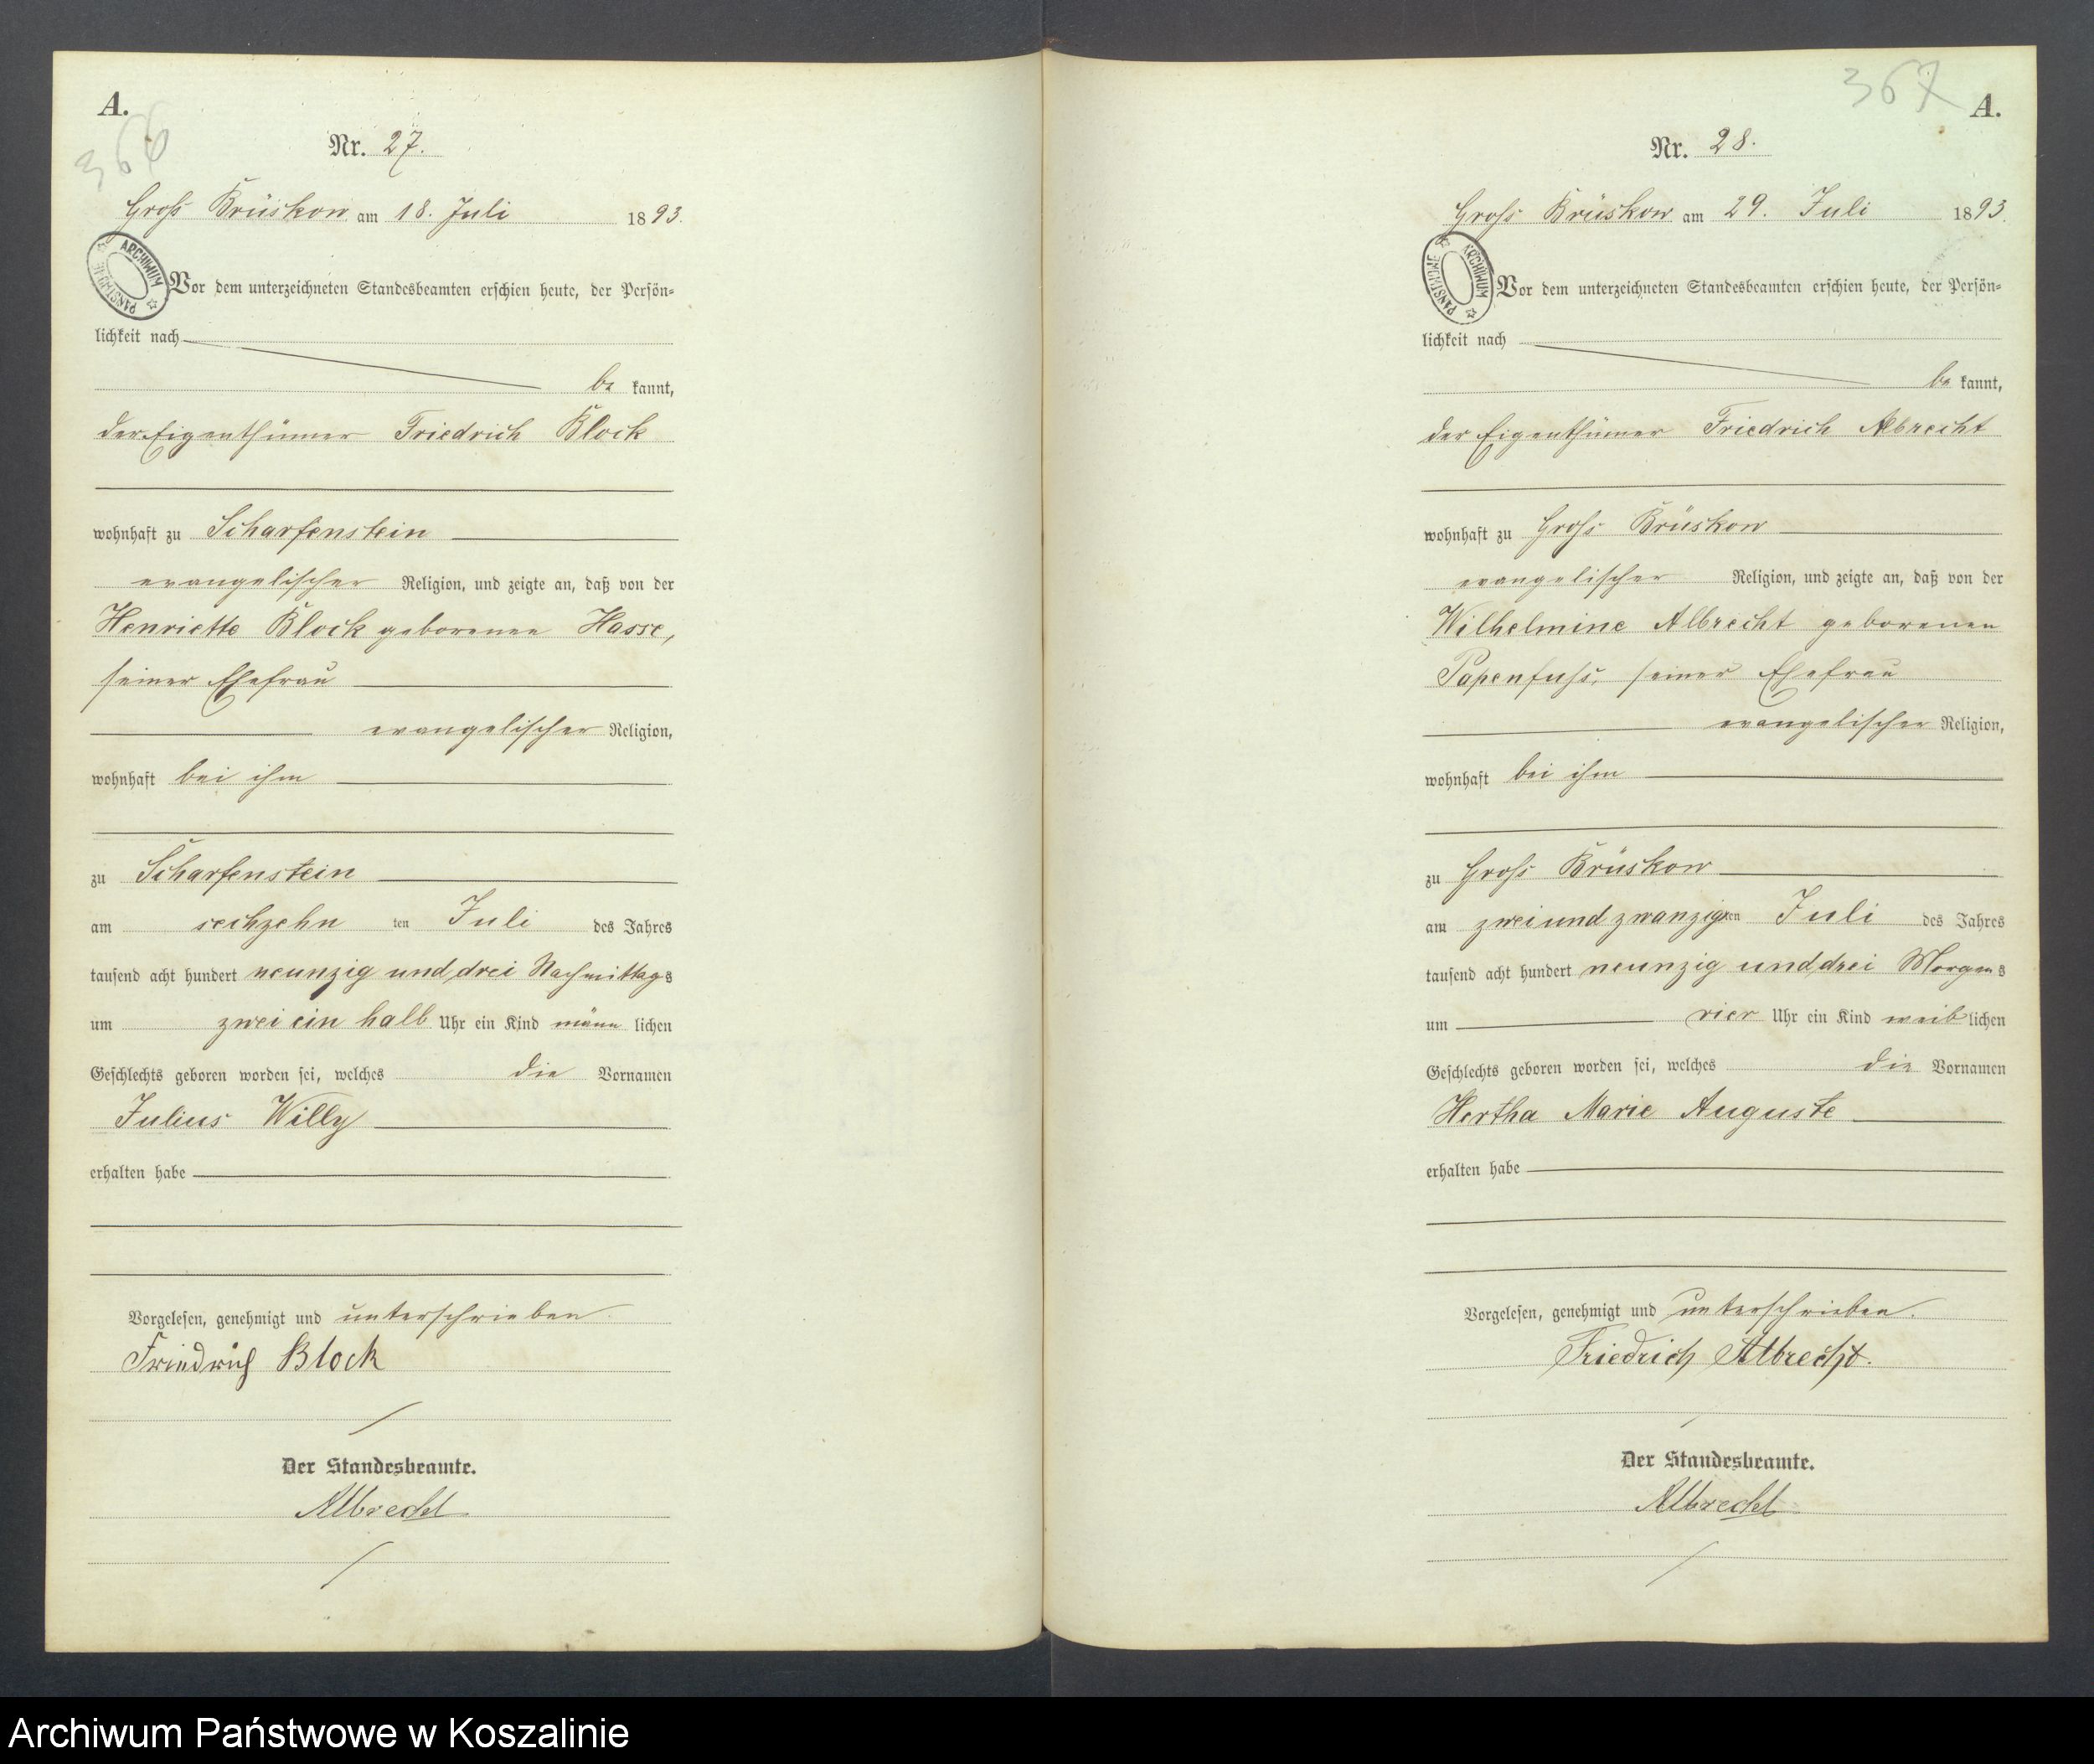 A.
366
Nr. 27.
Groß Brüskow am 18. Juli 1893.
ARCHIWUM PAŃSTWOWE
Vor dem unterzeichneten Standesbeamten erschien heute, der Persön=
lichkeit nach
be kannt,
der Eigenthümer Friedrich Block
wohnhaft zu Scharfenstein
evangelischer Religion, und zeigte an, daß von der
Henriette Block geborenen Hasse,
seiner Ehefrau
evangelischer Religion,
wohnhaft bei ihm
zu Scharfenstein
am sechzehn ten Juli des Jahres
tausend acht hundert neunzig und drei Nachmittags
um zwei ein halb Uhr ein Kind männ lichen
Geschlechts geboren worden sei, welches die Vornamen
Julius Willy
erhalten habe
Vorgelesen, genehmigt und unterschrieben.
Friedrich Block
Der Standesbeamte.
Albrecht
367
A.
Nr. 28.
Groß Brüskow am 29. Juli 1893.
ARCHIWUM PAŃSTWOWE
Vor dem unterzeichneten Standesbeamten erschien heute, der Persön=
lichkeit nach
be kannt,
der Eigenthümer Friedrich Albrecht
wohnhaft zu Groß Brüskow
evangelischer Religion, und zeigte an, daß von der
Wilhelmine Albrecht geborenen
Papenfuß, seiner Ehefrau
evangelischer Religion,
wohnhaft bei ihm
zu Groß Brüskow
am zweiundzwanzigsten Juli des Jahres
tausend acht hundert neunzig und drei Morgens
um vier Uhr ein Kind weib lichen
Geschlechts geboren worden sei, welches die Vornamen
Hertha Marie Auguste
erhalten habe
Vorgelesen, genehmigt und unterschrieben.
Friedrich Albrecht.
Der Standesbeamte.
Albrecht
Archiwum Państwowe w Koszalinie